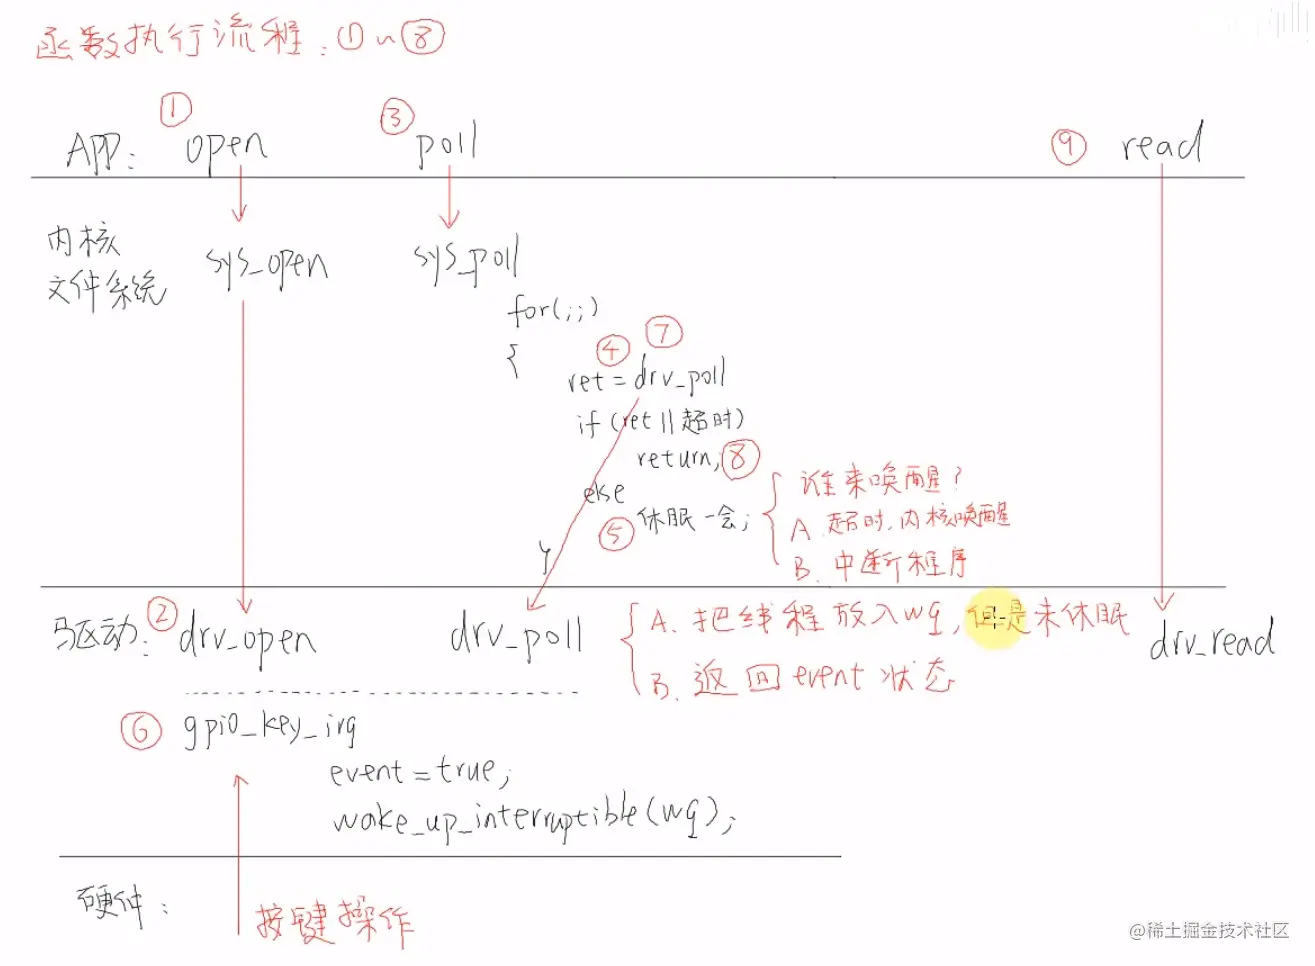 函数执行流程:①~⑧
① ③
APP: open poll ⑨ read
内核
文件系统 sys_open sys_poll
for(;;)
{ ④ ⑦
ret = drv_poll
if (ret || 超时)
return; ⑧
else
⑤ 休眠一会;
谁来唤醒?
A. 超时,内核唤醒
B. 中断程序
驱动: ② drv_open drv_poll drv_read
A. 把线程放入wq,但是未休眠
B. 返回event状态
⑥ gpio_key_irq
event = true;
wake_up_interruptible(wq);
硬件:
按键操作
@稀土掘金技术社区